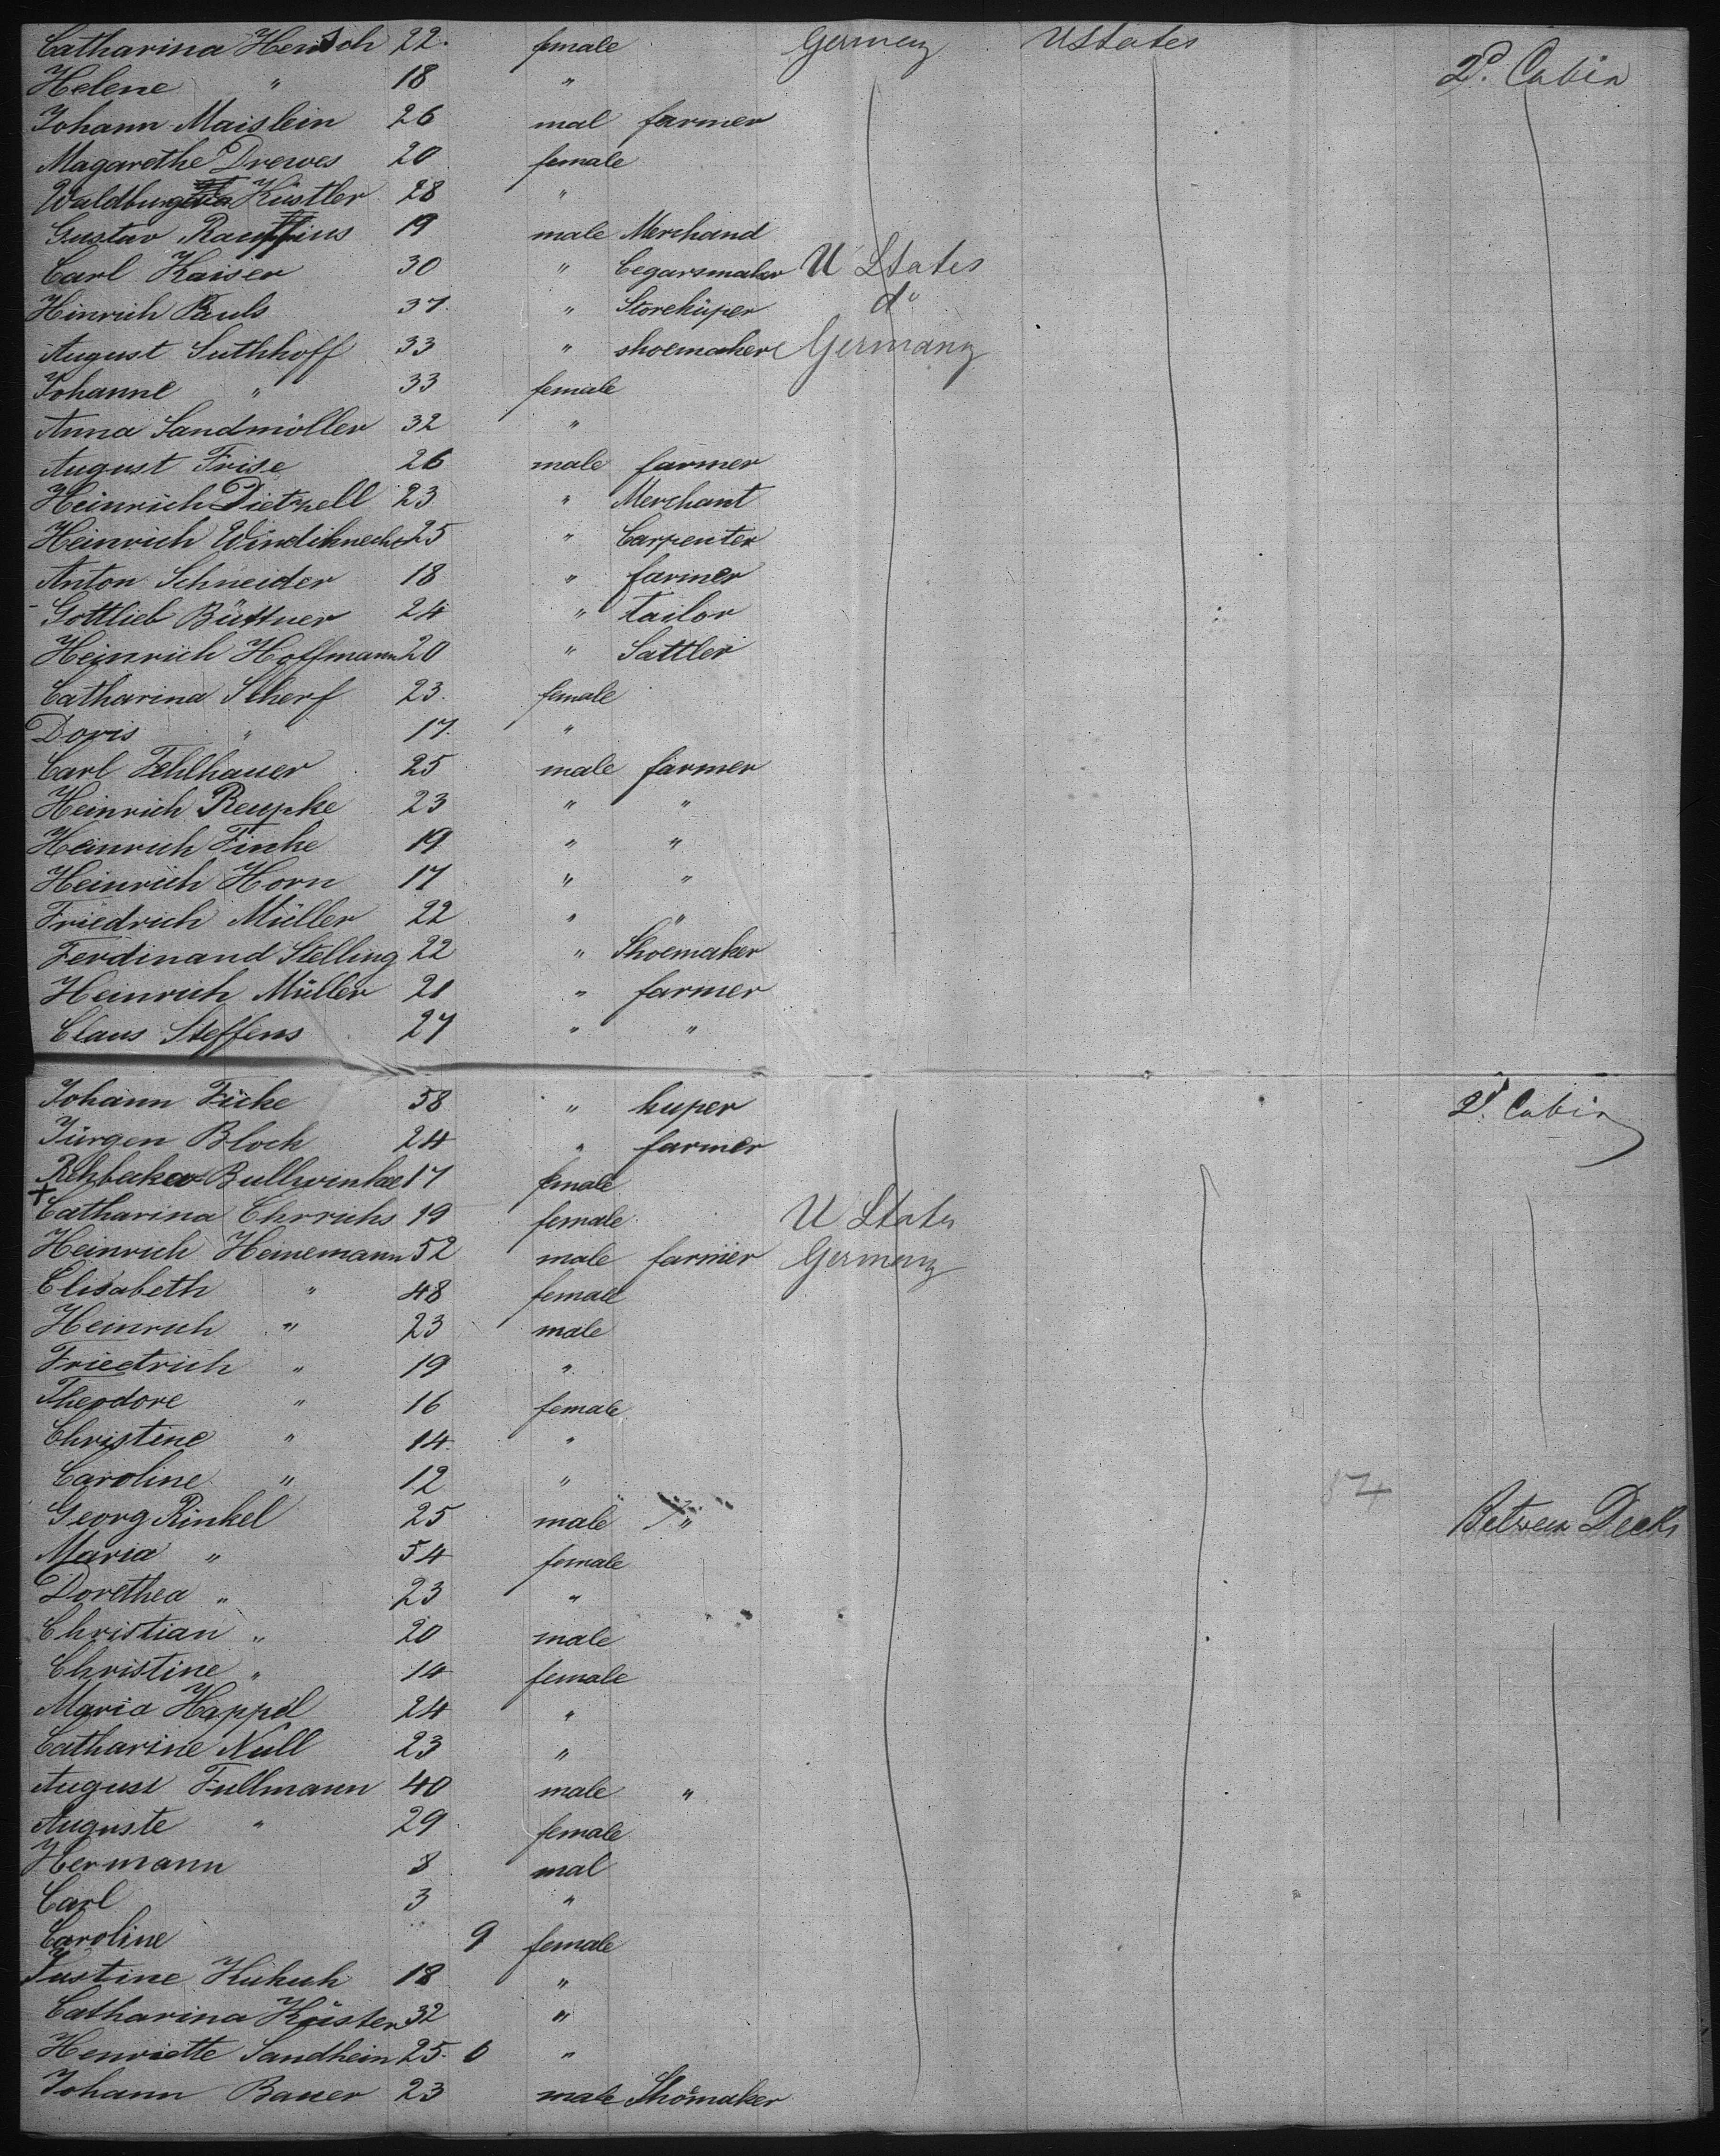 Catharina Hensch 22. female Germany UStates 2d. Cabin
Helene " 18 "
Johann Maislein 26 mal farmer
Magarethe Drewes 20 female
Waldburga Küstler 28 "
Gustav 19 male Merchand
Carl Kaiser 30 " Cegarsmaker U States
Hinrich Pauls 37 " Storeküper do
August Suthhoff 33 " shoemaker Germany
Johanne " 33 female
Anna Sandmöller 32 "
August Frise 26 male farmer
Heinrich Dietzell 23 " Merchant
Heinrich Windiknecht 25 " Carpenter
Anton Schneider 18 " farmer
Gottlieb Büttner 24 " Tailor
Heinrich Hoffmann 20 " Sattler
Catharina Scherf 23. female
Doris " 17. "
Carl Fehlhauer 25 male farmer
Heinrich Reupke 23 " "
Heinrich Finke 19 " "
Heinrich Horn 17 " "
Friedrich Müller 22 " "
Ferdinand Stelling 22 " Shoemaker
Heinrich Müller 21 " farmer
Claus Steffens 27 " "
Johann Ficke 58 " kuper 2d. Cabin
Jürgen Bloch 24 " farmer
Rehbecka Bullwinkel 17 female
+ Catharina Ehrrichs 19 female U States
Heinrich Heinemann 52 male farmer Germany
Elisabeth " 48 female
Heinrich " 23 male
Friedrich " 19 "
Theodore " 16 female
Christine " 14 "
Caroline " 12 "
Georg Rinkel 25 male " Between Deck
Maria " 54 female
Dorethea " 23 "
Christian " 20 male
Christine " 14 female
Maria Happel 24 "
Catharine Null 23 "
August Fullmann 40 male "
Auguste " 29 female
Hermann 8 mal
Carl 3 "
Caroline 9 female
Justine Kukuk 18 "
Catharina Küster 32 "
Henriette Sandhein 25. 6 "
Johann Bauer 23 male Shömaker